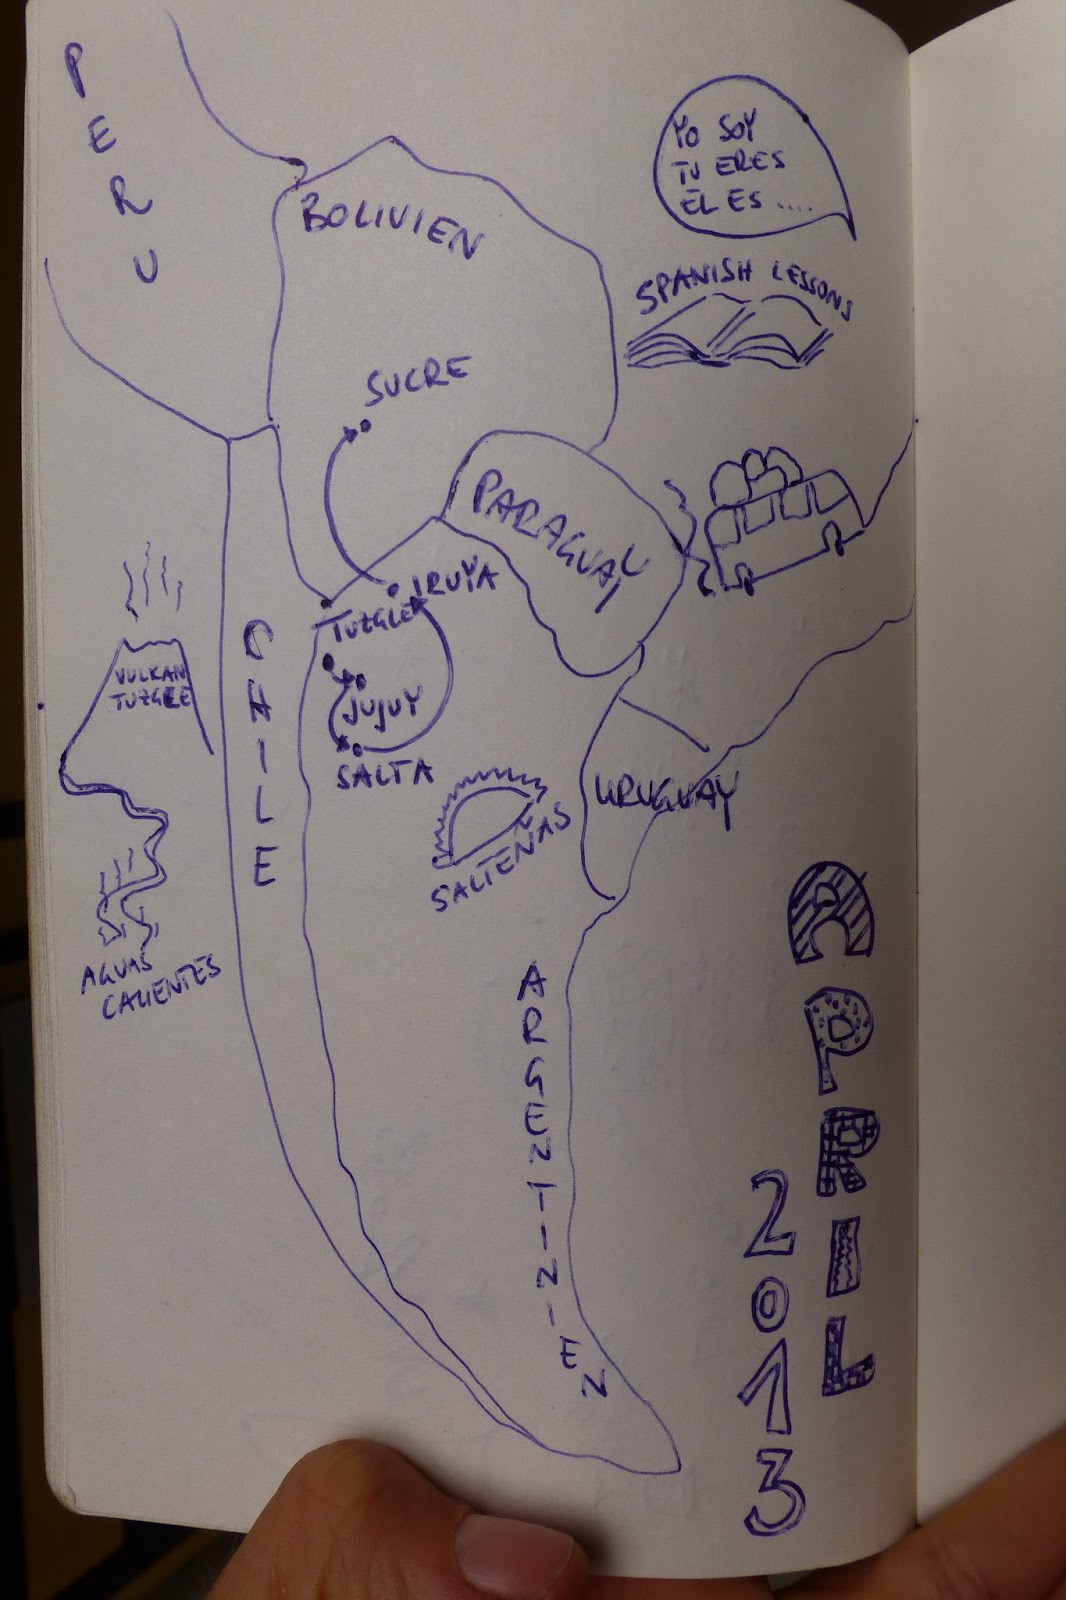 PERU
BOLIVIEN
YO SOY
TU ERES
EL ES .....
SPANISH LESSONS
SUCRE
PARAGUAY
IRUYA
TUZGLE
CHILE
VULKAN
TUZGLE
JUJUY
SALTA
SALTEÑAS
URUGUAY
AGUAS
CALIENTES
ARGENTINIEN
APRIL
2013